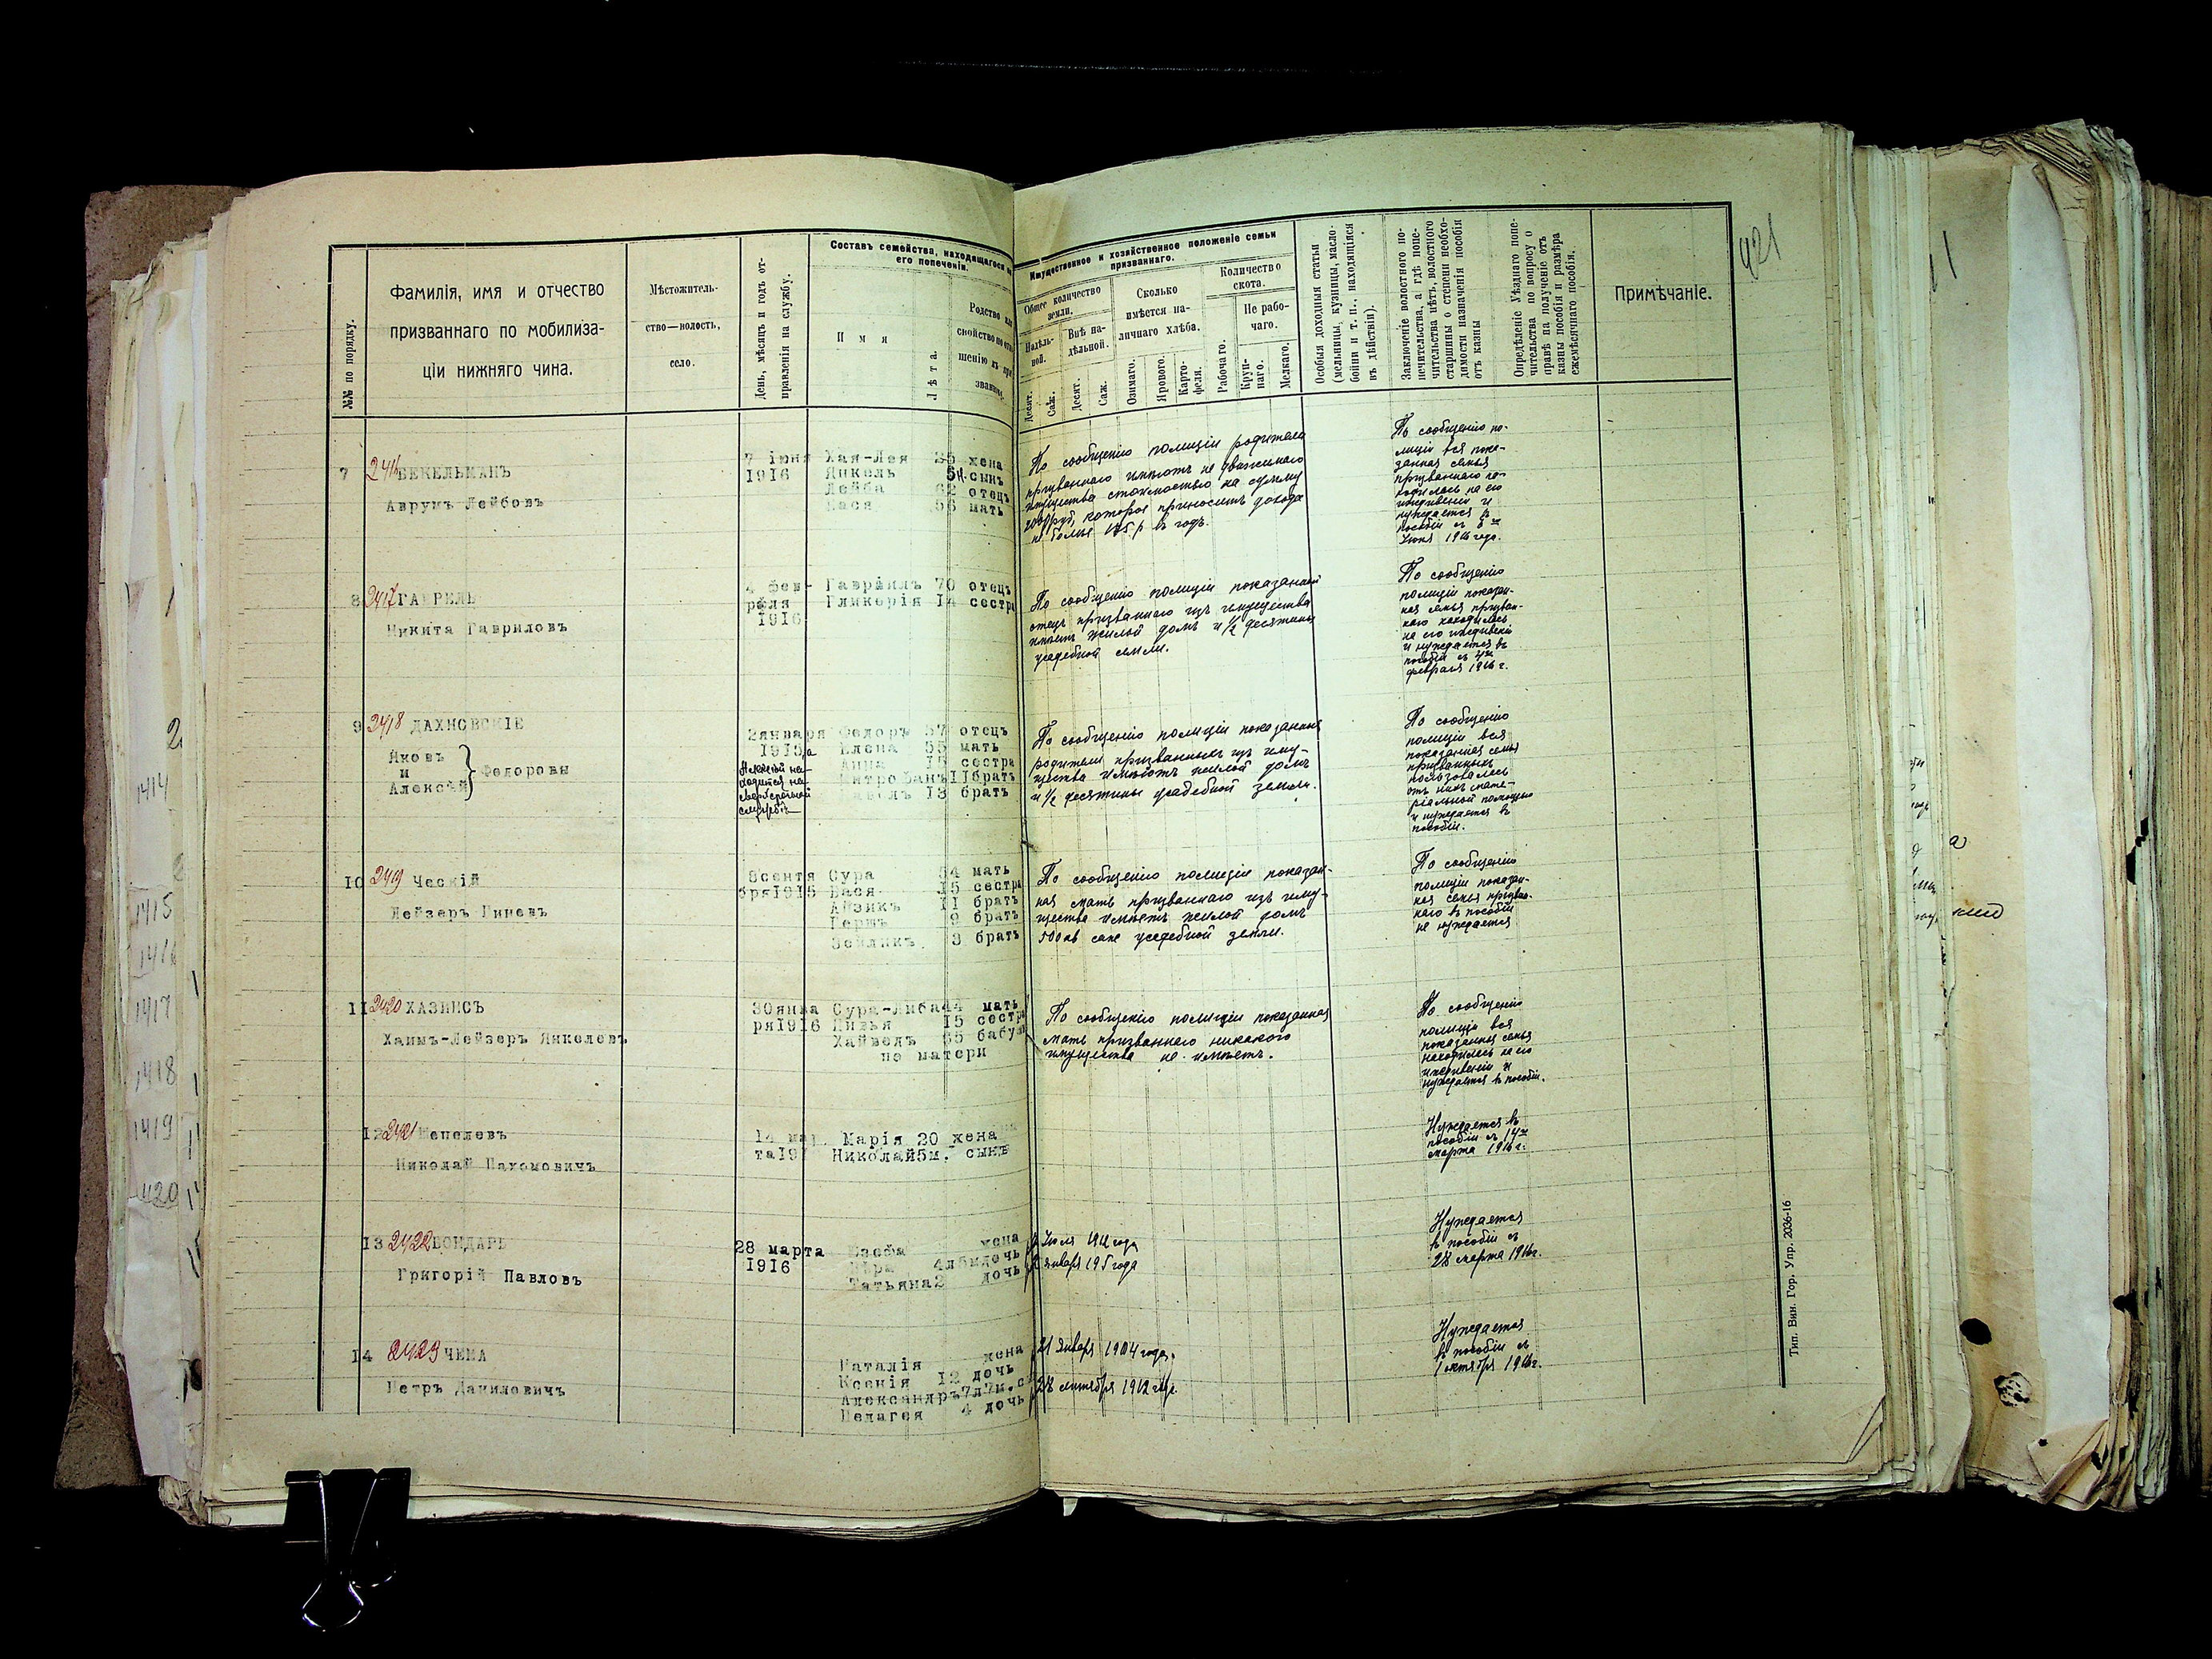 421
№№ по порядку.
Фамилія, имя и отчество
призваннаго по мобилиза-
ціи нижняго чина.
Мѣстожитель-
ство—волость,
село.
День, мѣсяцъ и годъ от-
правленія на службу.
Составъ семейства, находящагося на
его попеченіи.
Имя
Лѣта.
Родство или
свойство по отно-
шенію къ при-
званному.
Имущественное и хозяйственное положеніе семьи
призваннаго.
Общее количество
земли.
Надѣль-
ной.
Внѣ на-
дѣльной.
Десят.
Саж.
Десят.
Саж.
Сколько
имѣется на-
личнаго хлѣба.
Озимаго.
Ярового.
Карто-
феля.
Количество
скота.
Рабочаго.
Не рабо-
чаго.
Круп-
наго.
Мелкаго.
Особыя доходныя статьи
(мельницы, кузницы, масло-
бойни и т. п., находящіяся
въ дѣйствіи).
Заключеніе волостного по-
печительства, а гдѣ попе-
чительства нѣтъ, волостного
старшины о степени необхо-
димости назначенія пособія
отъ казны
Опредѣленіе Уѣзднаго попе-
чительства по вопросу о
правѣ на полученіе отъ
казны пособія и размѣра
ежемѣсячнаго пособія.
Примѣчаніе.
7 2416 БЕКЕЛЬМАНЪ
Аврумъ Лейбовъ
7 іюня
1916
Хая-Лея 35 жена
Янкель 5м. сынъ
Лейба 62 отецъ
Бася 56 мать
По сообщенію полиціи родители
призваннаго имѣютъ не движимаго
имущества стоимостью на сумму
руб, которое приноситъ дохода
не болѣе 175 р въ годъ.
По сообщенію по-
лиціи вся пока-
занная семья
призваннаго на-
ходилась на его
иждивеніи и
нуждается въ
пособіи съ
Іюня 1916 года.
8 2417 ГАВРЕЛЬ
Никита Гавриловъ
4 фев-
раля
1916
Гавріилъ 70 отецъ
Гликерія 14 сестра
По сообщенію полиціи показанный
отецъ призваннаго изъ имущества
имѣетъ жилой домъ и 1/2 десятины
усадебной земли.
По сообщенію
полиціи показан-
ная семья призван-
наго находилась
на его иждивеніи
и нуждается въ
пособіи съ 4го
февраля 1916 г.
9 2418 ДАХНОВСКІЕ
Яковъ
и
Алексѣй
Федоровы
2января
1915
Алексѣй на-
ходится на
службѣ
Федоръ 57 отецъ
Елена 55 мать
Анна 15 сестра
Митрофанъ11братъ
Павелъ 13 братъ
По сообщенію полиціи показанные
родители призванныхъ изъ иму-
щества имѣютъ жилой домъ
и 1/2 десятины усадебной земли.
По сообщенію
полиціи вся
показанная семья
призванныхъ
пользовалась
отъ нихъ мате-
ріальной помощью
и нуждается въ
пособіи.
10 2419 Ческій
Лейзеръ Пиневъ
8сентя
бря1915
Сура 54 мать
Бася 15 сестра
Айзикъ 11 братъ
Гершъ 9 братъ
Зейликъ 3 братъ
По сообщенію полиціи показан-
ная мать призваннаго изъ иму-
щества имѣетъ жилой домъ
500 кв саж усадебной земли.
По сообщенію
полиціи показан-
ная семья призван-
наго въ пособіи
не нуждается
11 2420 ХАЗИНСЪ
Хаимъ-Лейзеръ Янкелевъ
30янва
ря1916
Сура-Либа44 мать
Ливья 15 сестра
65 бабушк
по матери
По сообщенію полиціи показанная
мать призваннаго никакого
имущества не имѣетъ.
По сообщенію
полиціи вся
показанная семья
находилась на его
иждивеніи и
нуждается въ пособіи.
12 2421 Шепелевъ
Николай Пахомовичъ
14 мар.
та191
Марія 20 жена
Николай5м. сынъ
Нуждается въ
пособіи съ 14го
марта 1916 г.
13 2422 БОНДАРЬ
Григорій Павловъ
28 марта
1916
жена
Вѣра дочь
Татьяна2 дочь
Іюля 1911 года
января 1915 года
Нуждается
въ пособіи съ
28 марта 1916г.
14 2423 ЧЕМА
Петръ Даниловичъ
Наталія жена
Ксенія 12 дочь
Александръ7л7м.с
Пелагея 4 дочь
21 января 1904 года.
28 сентября 1912 года
Нуждается
въ пособіи съ
1 октября 1916г.
Тип. Вин. Гор. Упр. 2036-16
1414
1415
1416
1417
1418
1419
420